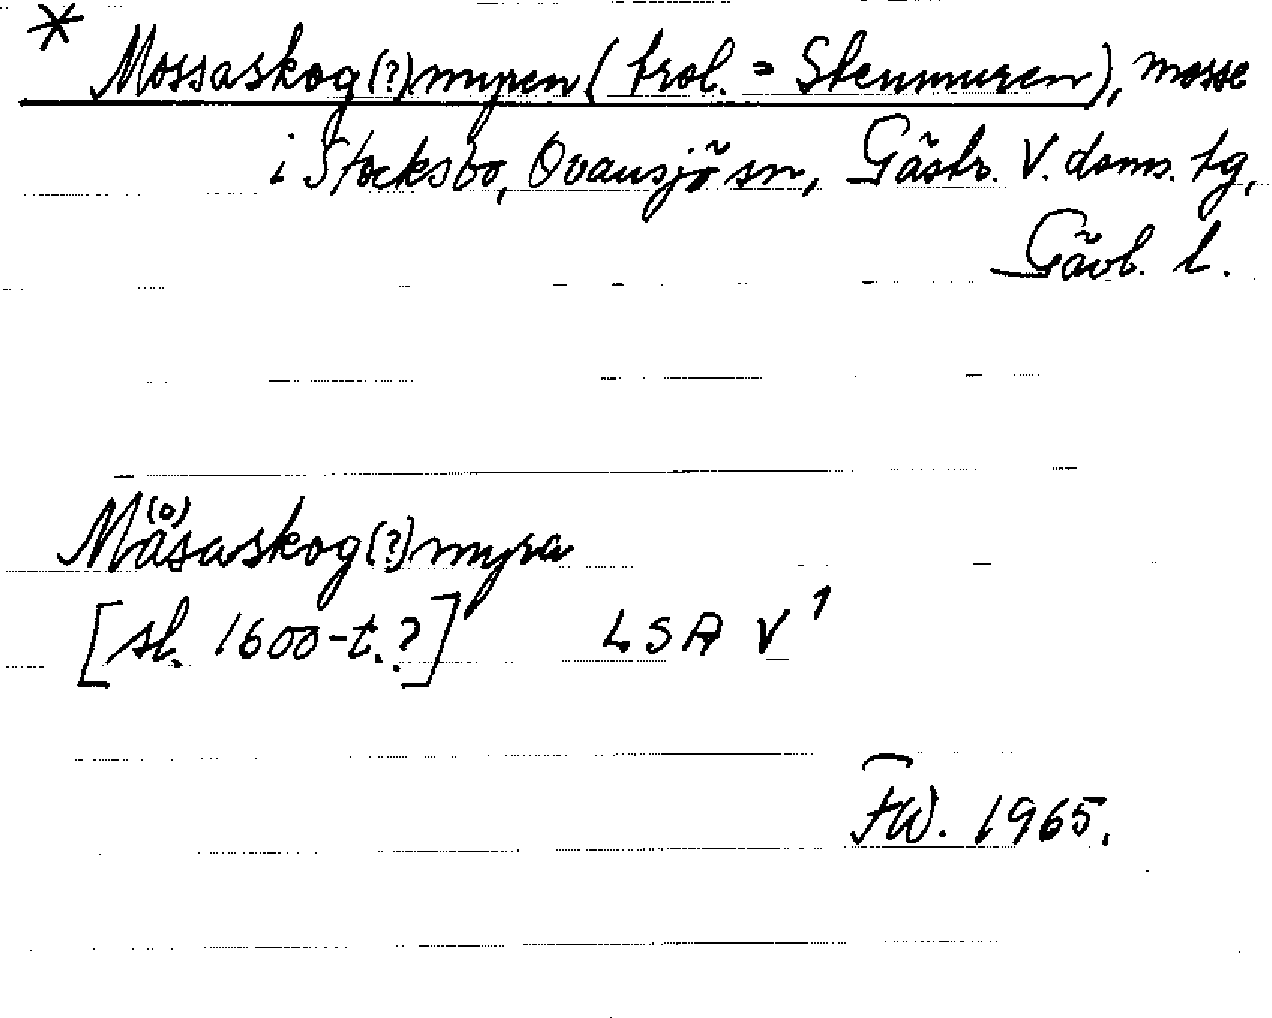 * Mossaskog(?)myren (trol. = Stenmuren), mosse
i Stocksbo, Ovansjö sn, Gästr. V. doms. tg,
Gävl. l.
Må(o)saskog(?)myra
[sl. 1600-t.?] LSA V 1
FW. 1965.